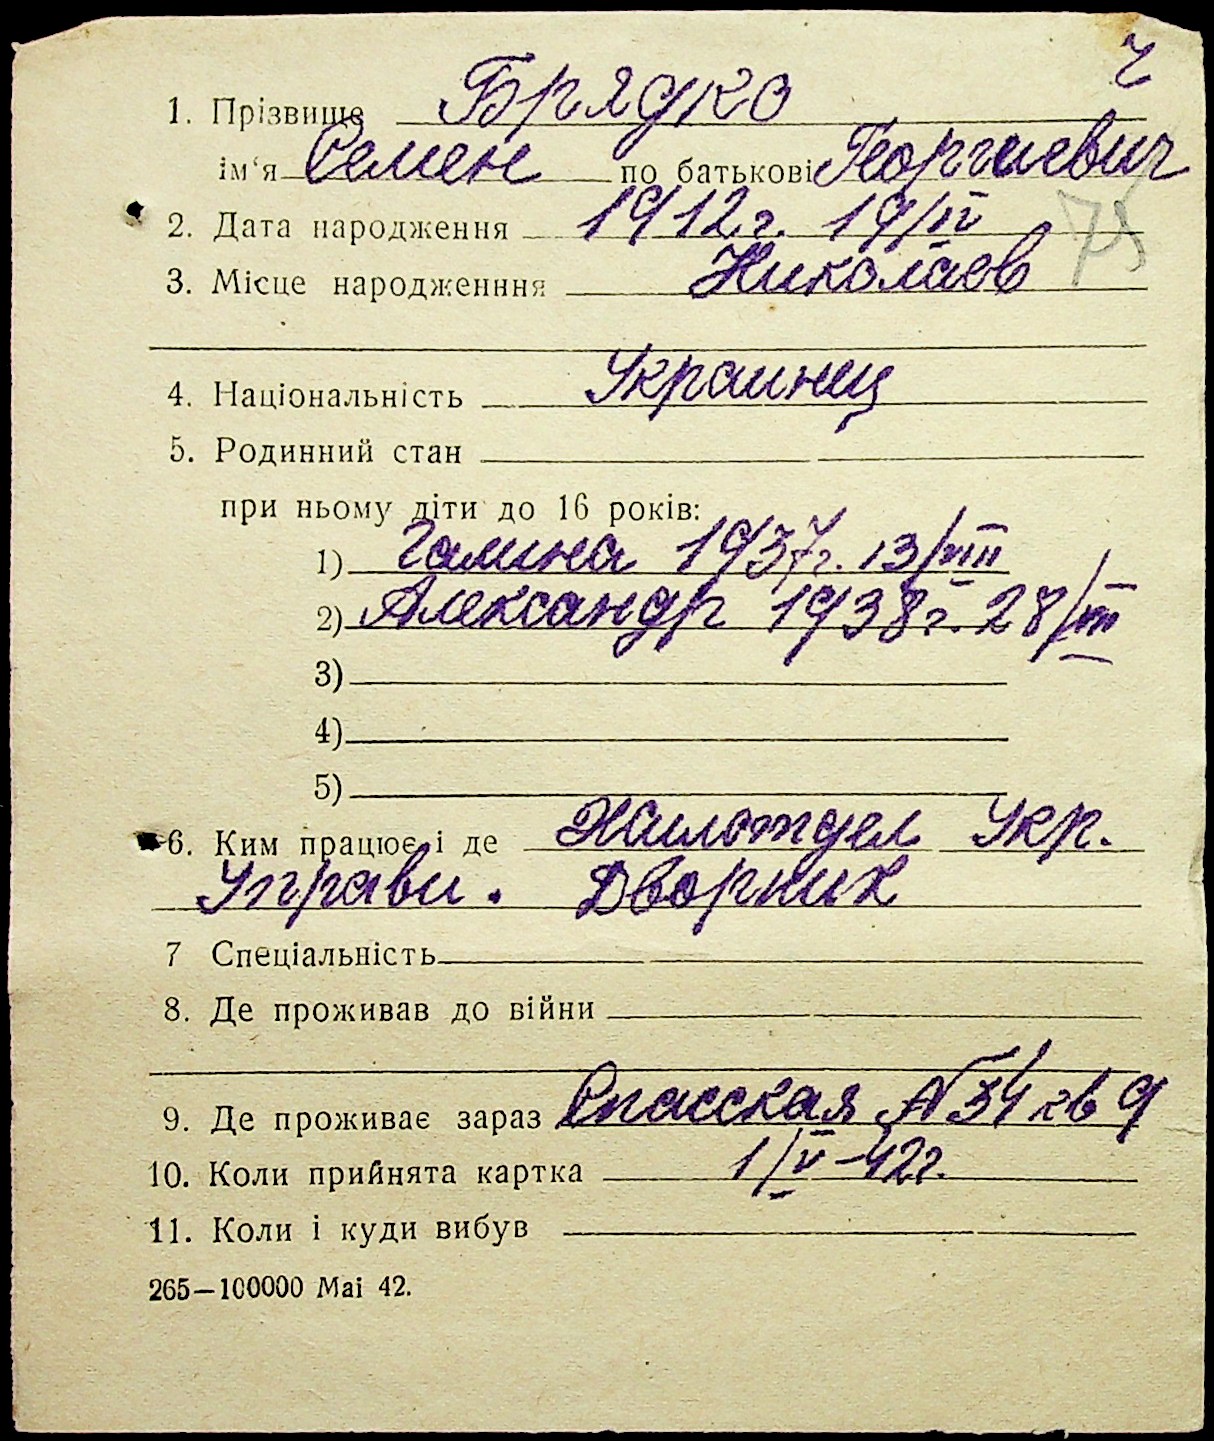 ч
1. Прізвище Брядко
ім'я Семен по батькові Георгиевич
2. Дата народження 1912 г. 19/IV
75
3. Місце народженння Николаев
4. Національність Украинец
5. Родинний стан
при ньому діти до 16 років:
1) Галина 1937 г. 13/VIII
2) Александр 1938 г. 28/III
3)
4)
5)
6. Ким працює і де Жилотдел Укр.
Управи. Дворник
7 Спеціальність
8. Де проживав до війни
9. Де проживає зараз Спасская № 34 кв 9
10. Коли прийнята картка 1/V-42 г.
11. Коли і куди вибув
265—100000 Маі 42.